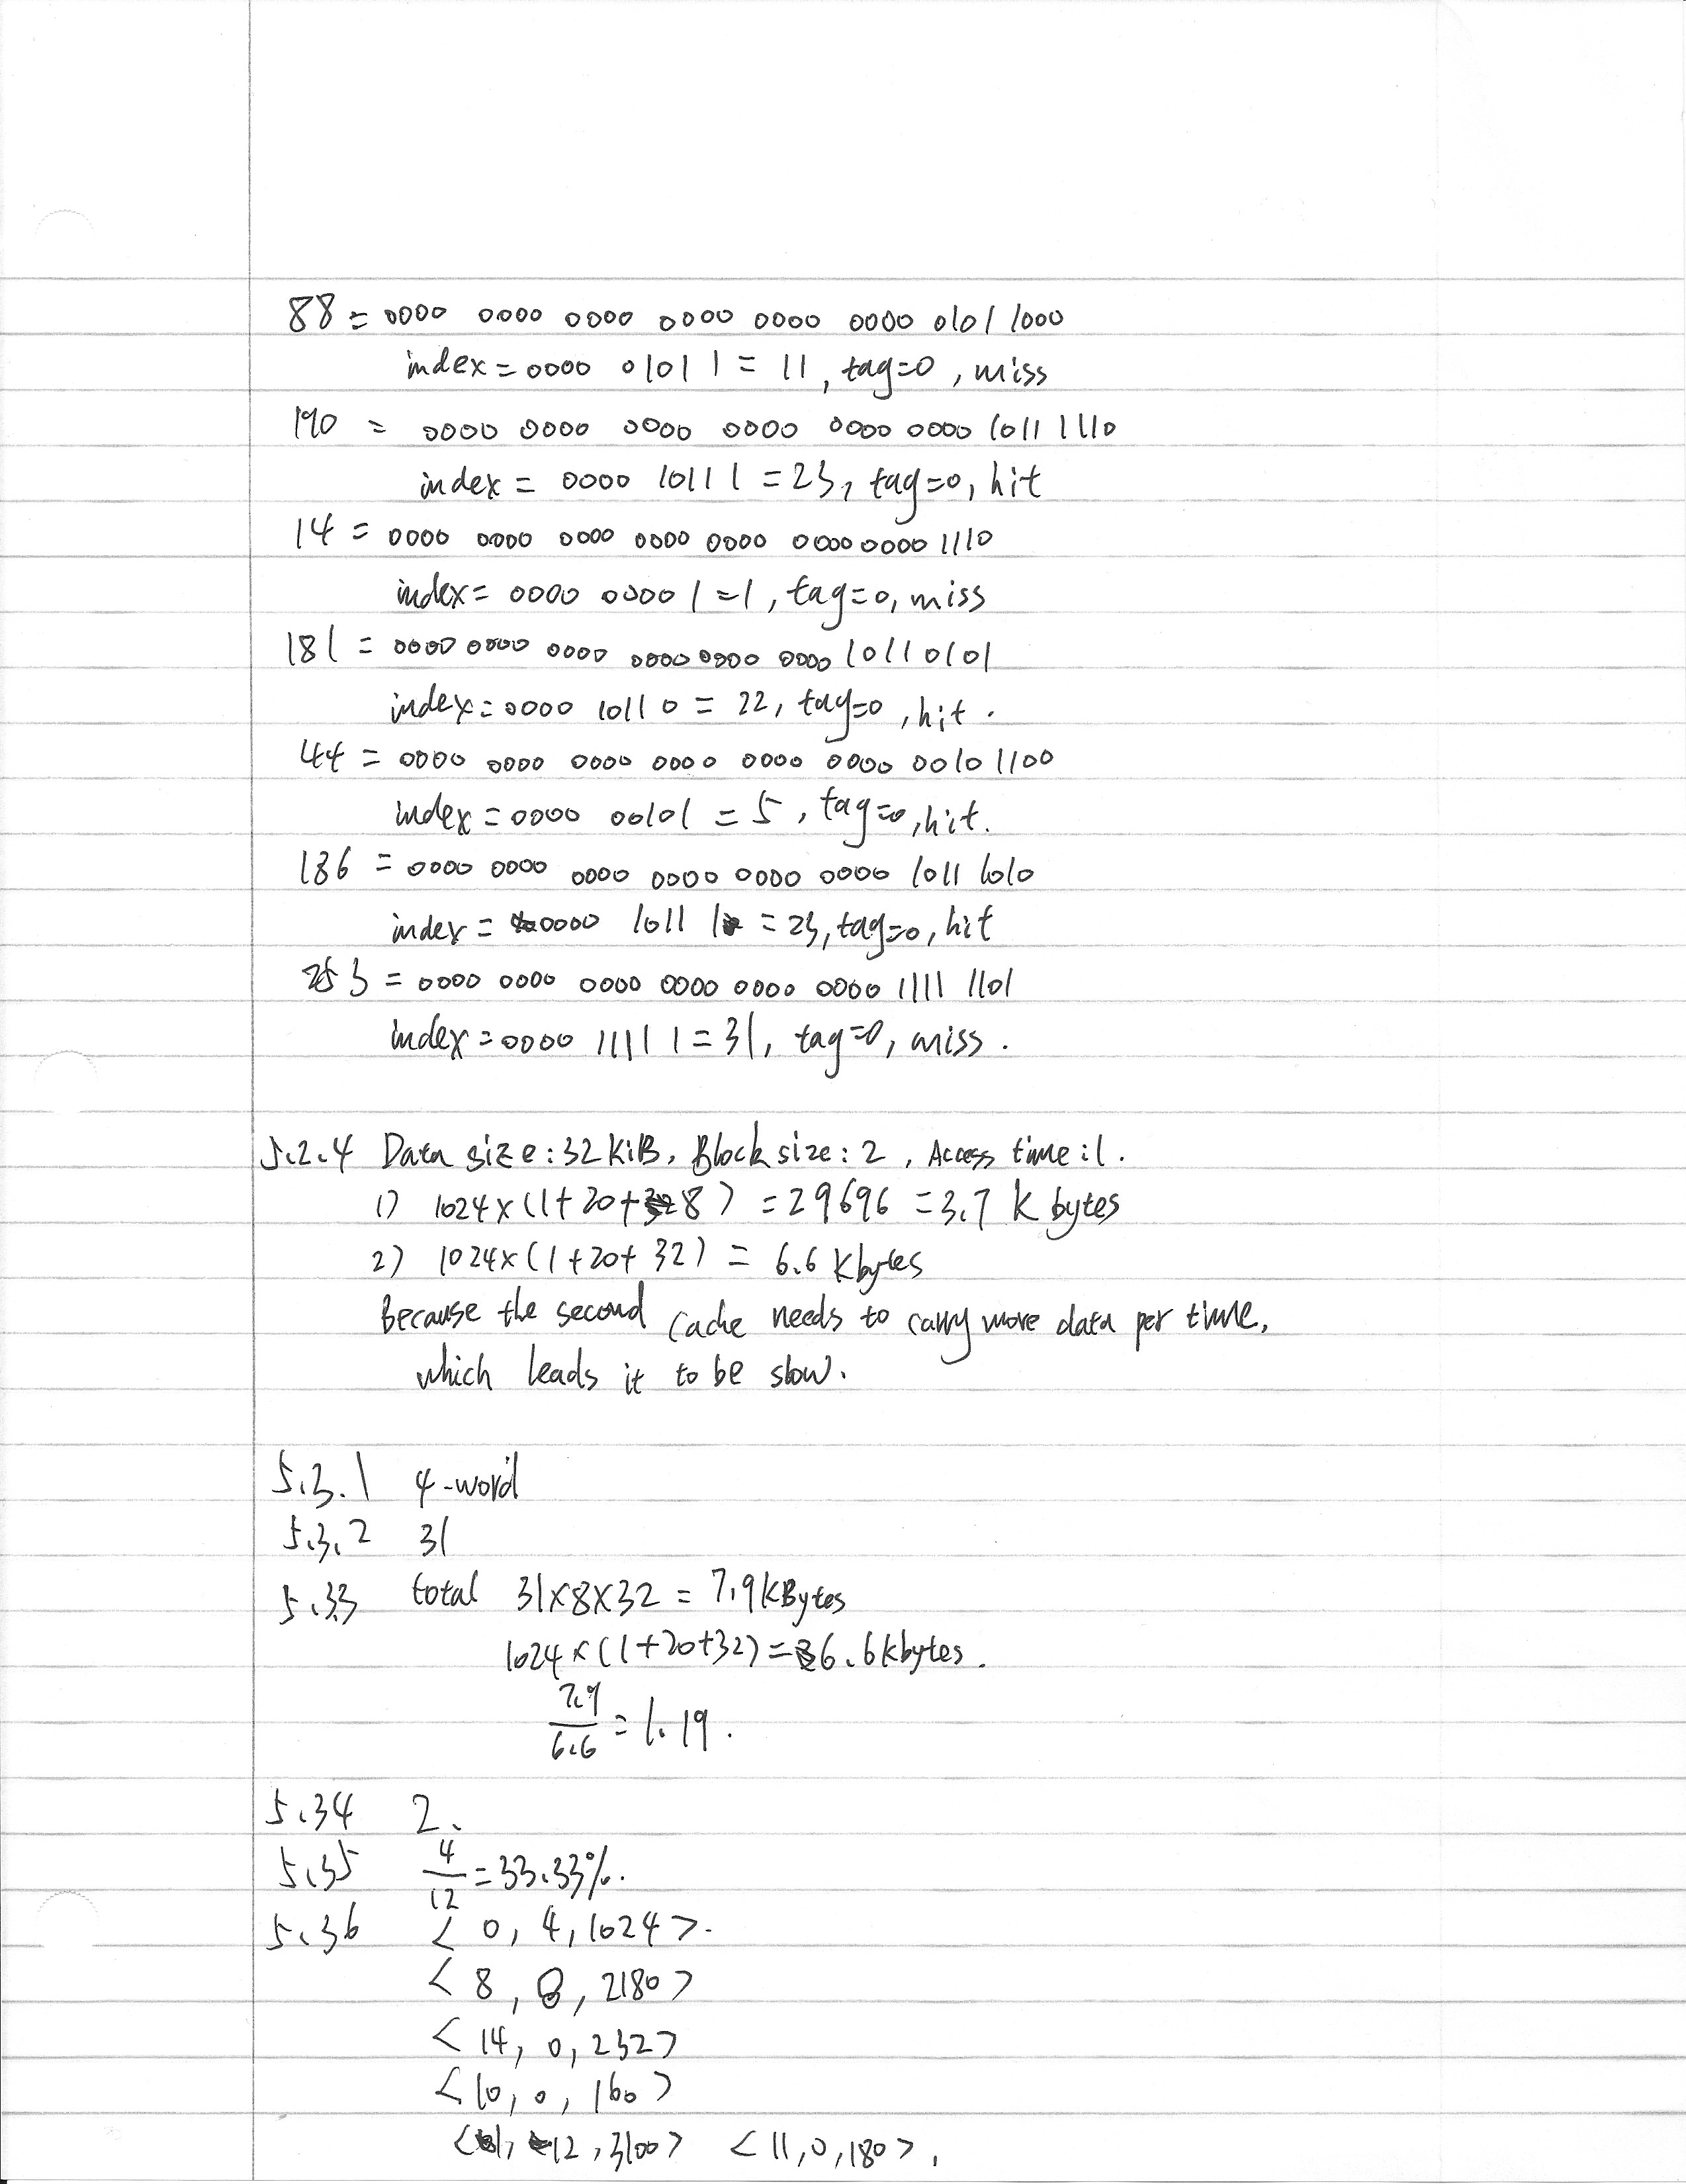 88 = 0000 0000 0000 0000 0000 0000 0101 1000
index = 0000 01011 = 11, tag=0, miss
190 = 0000 0000 0000 0000 0000 0000 1011 1110
index = 0000 10111 = 23, tag=0, hit
14 = 0000 0000 0000 0000 0000 0000 0000 1110
index = 0000 0000 1 = 1, tag=0, miss
181 = 0000 0000 0000 0000 0000 0000 1011 0101
index = 0000 1011 0 = 22, tag=0, hit.
44 = 0000 0000 0000 0000 0000 0000 0010 1100
index = 0000 00101 = 5, tag=0, hit.
186 = 0000 0000 0000 0000 0000 0000 1011 1010
index = 0000 1011 1 = 23, tag=0, hit
253 = 0000 0000 0000 0000 0000 0000 1111 1101
index = 0000 1111 1 = 31, tag=0, miss.
5.2.4 Data size: 32 KiB, Block size: 2, Access time: 1.
1) 1024×(1+20+8) = 29696 = 3.7 K bytes
2) 1024×(1+20+32) = 6.6 Kbytes
Because the second cache needs to carry more data per time,
which leads it to be slow.
5.3.1 4-word
5.3.2 31
5.33 total 31×8×32 = 7.9 KBytes
1024×(1+20+32) = 6.6 kbytes.
7.9/6.6 = 1.19.
5.34 2.
5.35 4/12 = 33.33%.
5.36 < 0, 4, 1024 >.
< 8, 8, 2180 >
< 14, 0, 232 >
< 10, 0, 160 >
< 1, 12, 3100 > < 11, 0, 180 >.